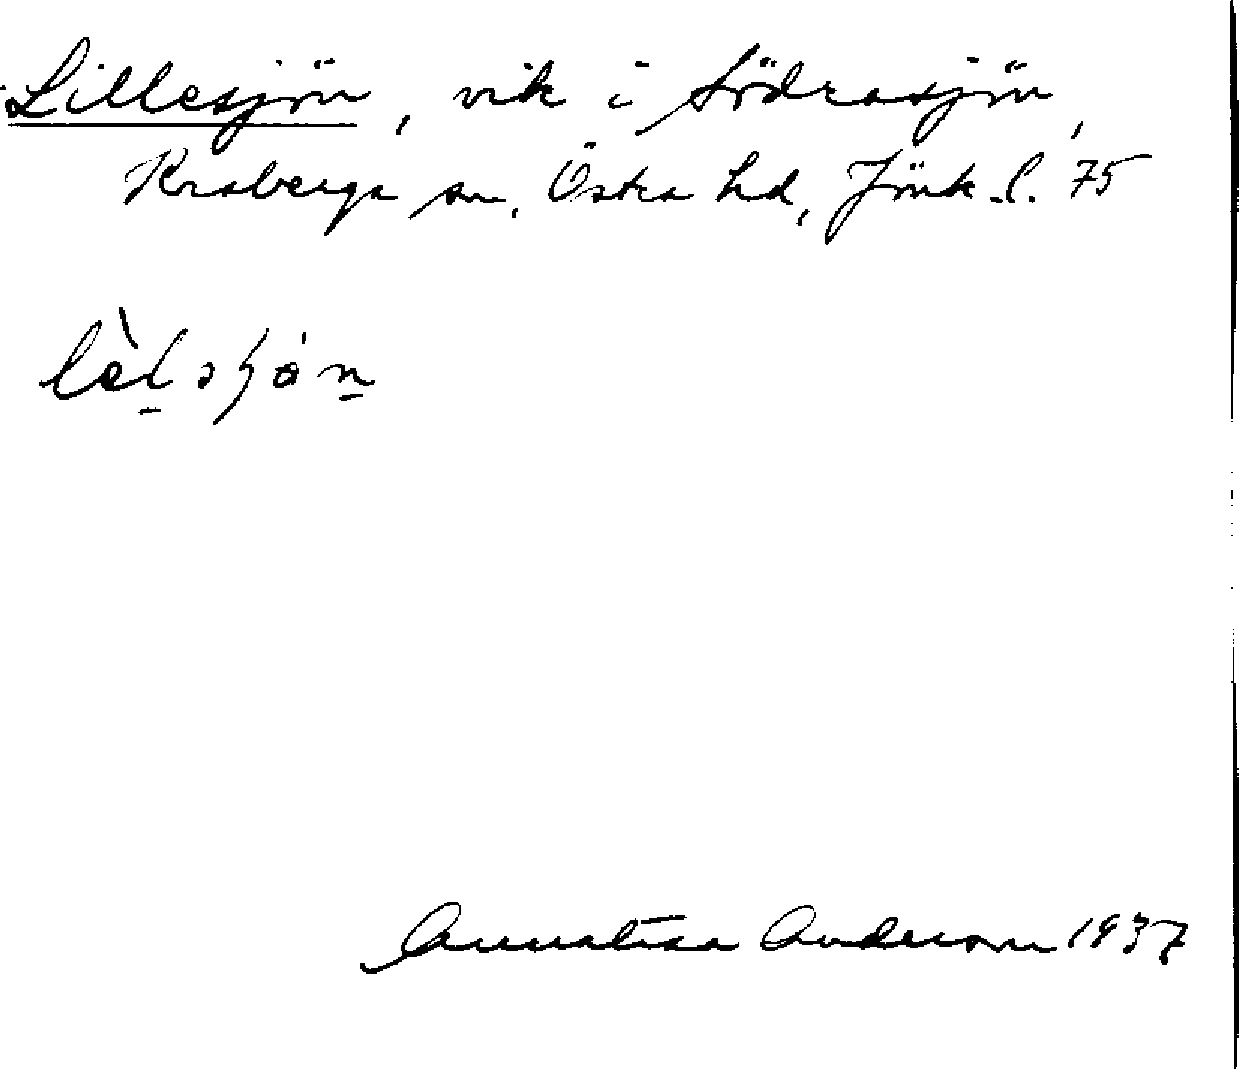 Lillesjön, vik i Södrasjön,
Kråkerga sn, Östra hd, Jönk. l. 75
Annalisa Anderson 1937